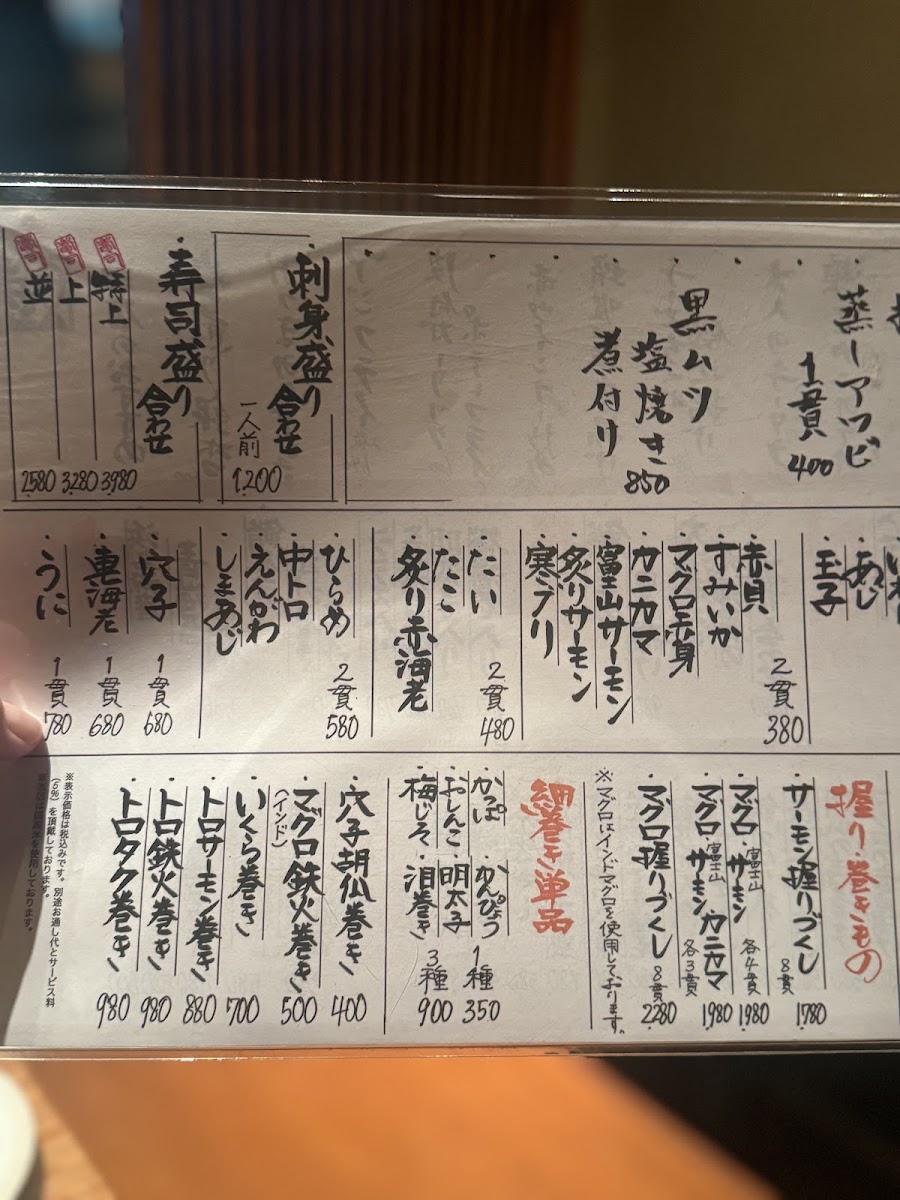 蒸しアワビ
1貫 400
黒ムツ
塩焼き 850
煮付け
刺身盛り合わせ
一人前 1,200
寿司盛り合わせ
特上 3,980
上 3,280
並 2,580
あじ
玉子
2貫 380
赤貝
すみいか
マグロ赤身
カニカマ
富士山サーモン
炙りサーモン
寒ブリ
たい 2貫 480
たこ
炙り赤海老
ひらめ 2貫 580
中トロ
えんがわ
しまあじ
穴子 1貫 680
車海老 1貫 680
うに 1貫 780
握り・巻きもの
サーモン握りづくし 8貫 1,780
マグロ・富士山サーモン 各4貫 1,980
マグロ・富士山サーモン カニカマ 各3貫 1,980
マグロ握りづくし 8貫 2,280
※マグロはインドマグロを使用しております。
細巻き単品
かっぱ・かんぴょう 1種 350
おしんこ・明太子
梅じそ・泪巻き 3種 900
穴子胡仏巻き 400
マグロ鉄火巻き 500
(インド)
いくら巻き 700
トロサーモン巻き 880
トロ鉄火巻き 980
トロタク巻き 980
※表示価格は税込みです。別途お通し代とサービス料
(5%)を頂戴しております。